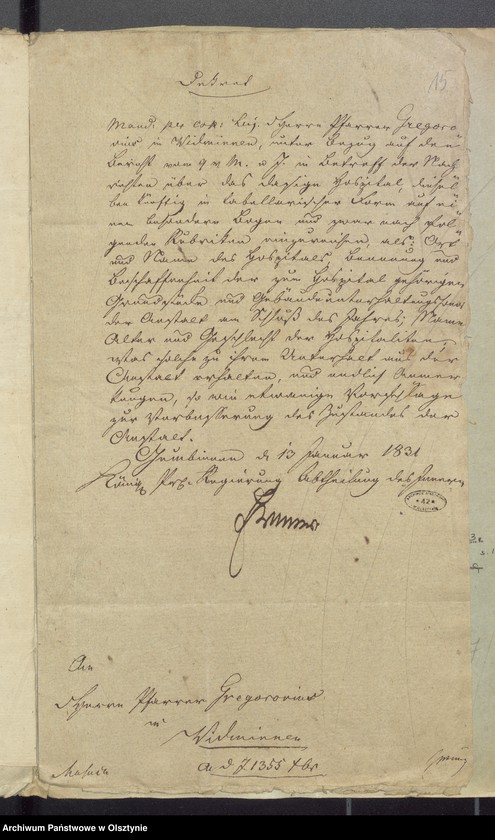 15
Dekret
Mand. per cop: dem Herrn Pfarrer Gregoro-
vius in Widminnen, unter Bezug auf den
Bericht vom 9 v M. u J. in Betreff der Nach-
richten über das dasige Hospital, diesel-
ben künftig in tabellarischer Form auf ei-
nen besondern Bogen und zwar nach fol-
genden Rubriken einzureichen, als: Ort
und Name des Hospitals, Benennung und
Beschaffenheit der zum Hospital gehörigen
Grundstücke und Gebäude
der Anstalt am Schluß des Jahres; Name
Alter und Geschlecht der Hospitaliten,
was solche zu ihrem Unterhalt aus der
Anstalt erhalten, und endlich Anmer-
kungen, so wie etwanige Vorschläge
zur Verbesserung des Zustandes der
Anstalt.
Gumbinnen d 13 Januar 1831
Königl Pr. Regierung Abtheilung des Innern
An
d Herrn Pfarrer Gregorovius
in
Widminnen
A d J 1355 / br
Archiwum Państwowe w Olsztynie